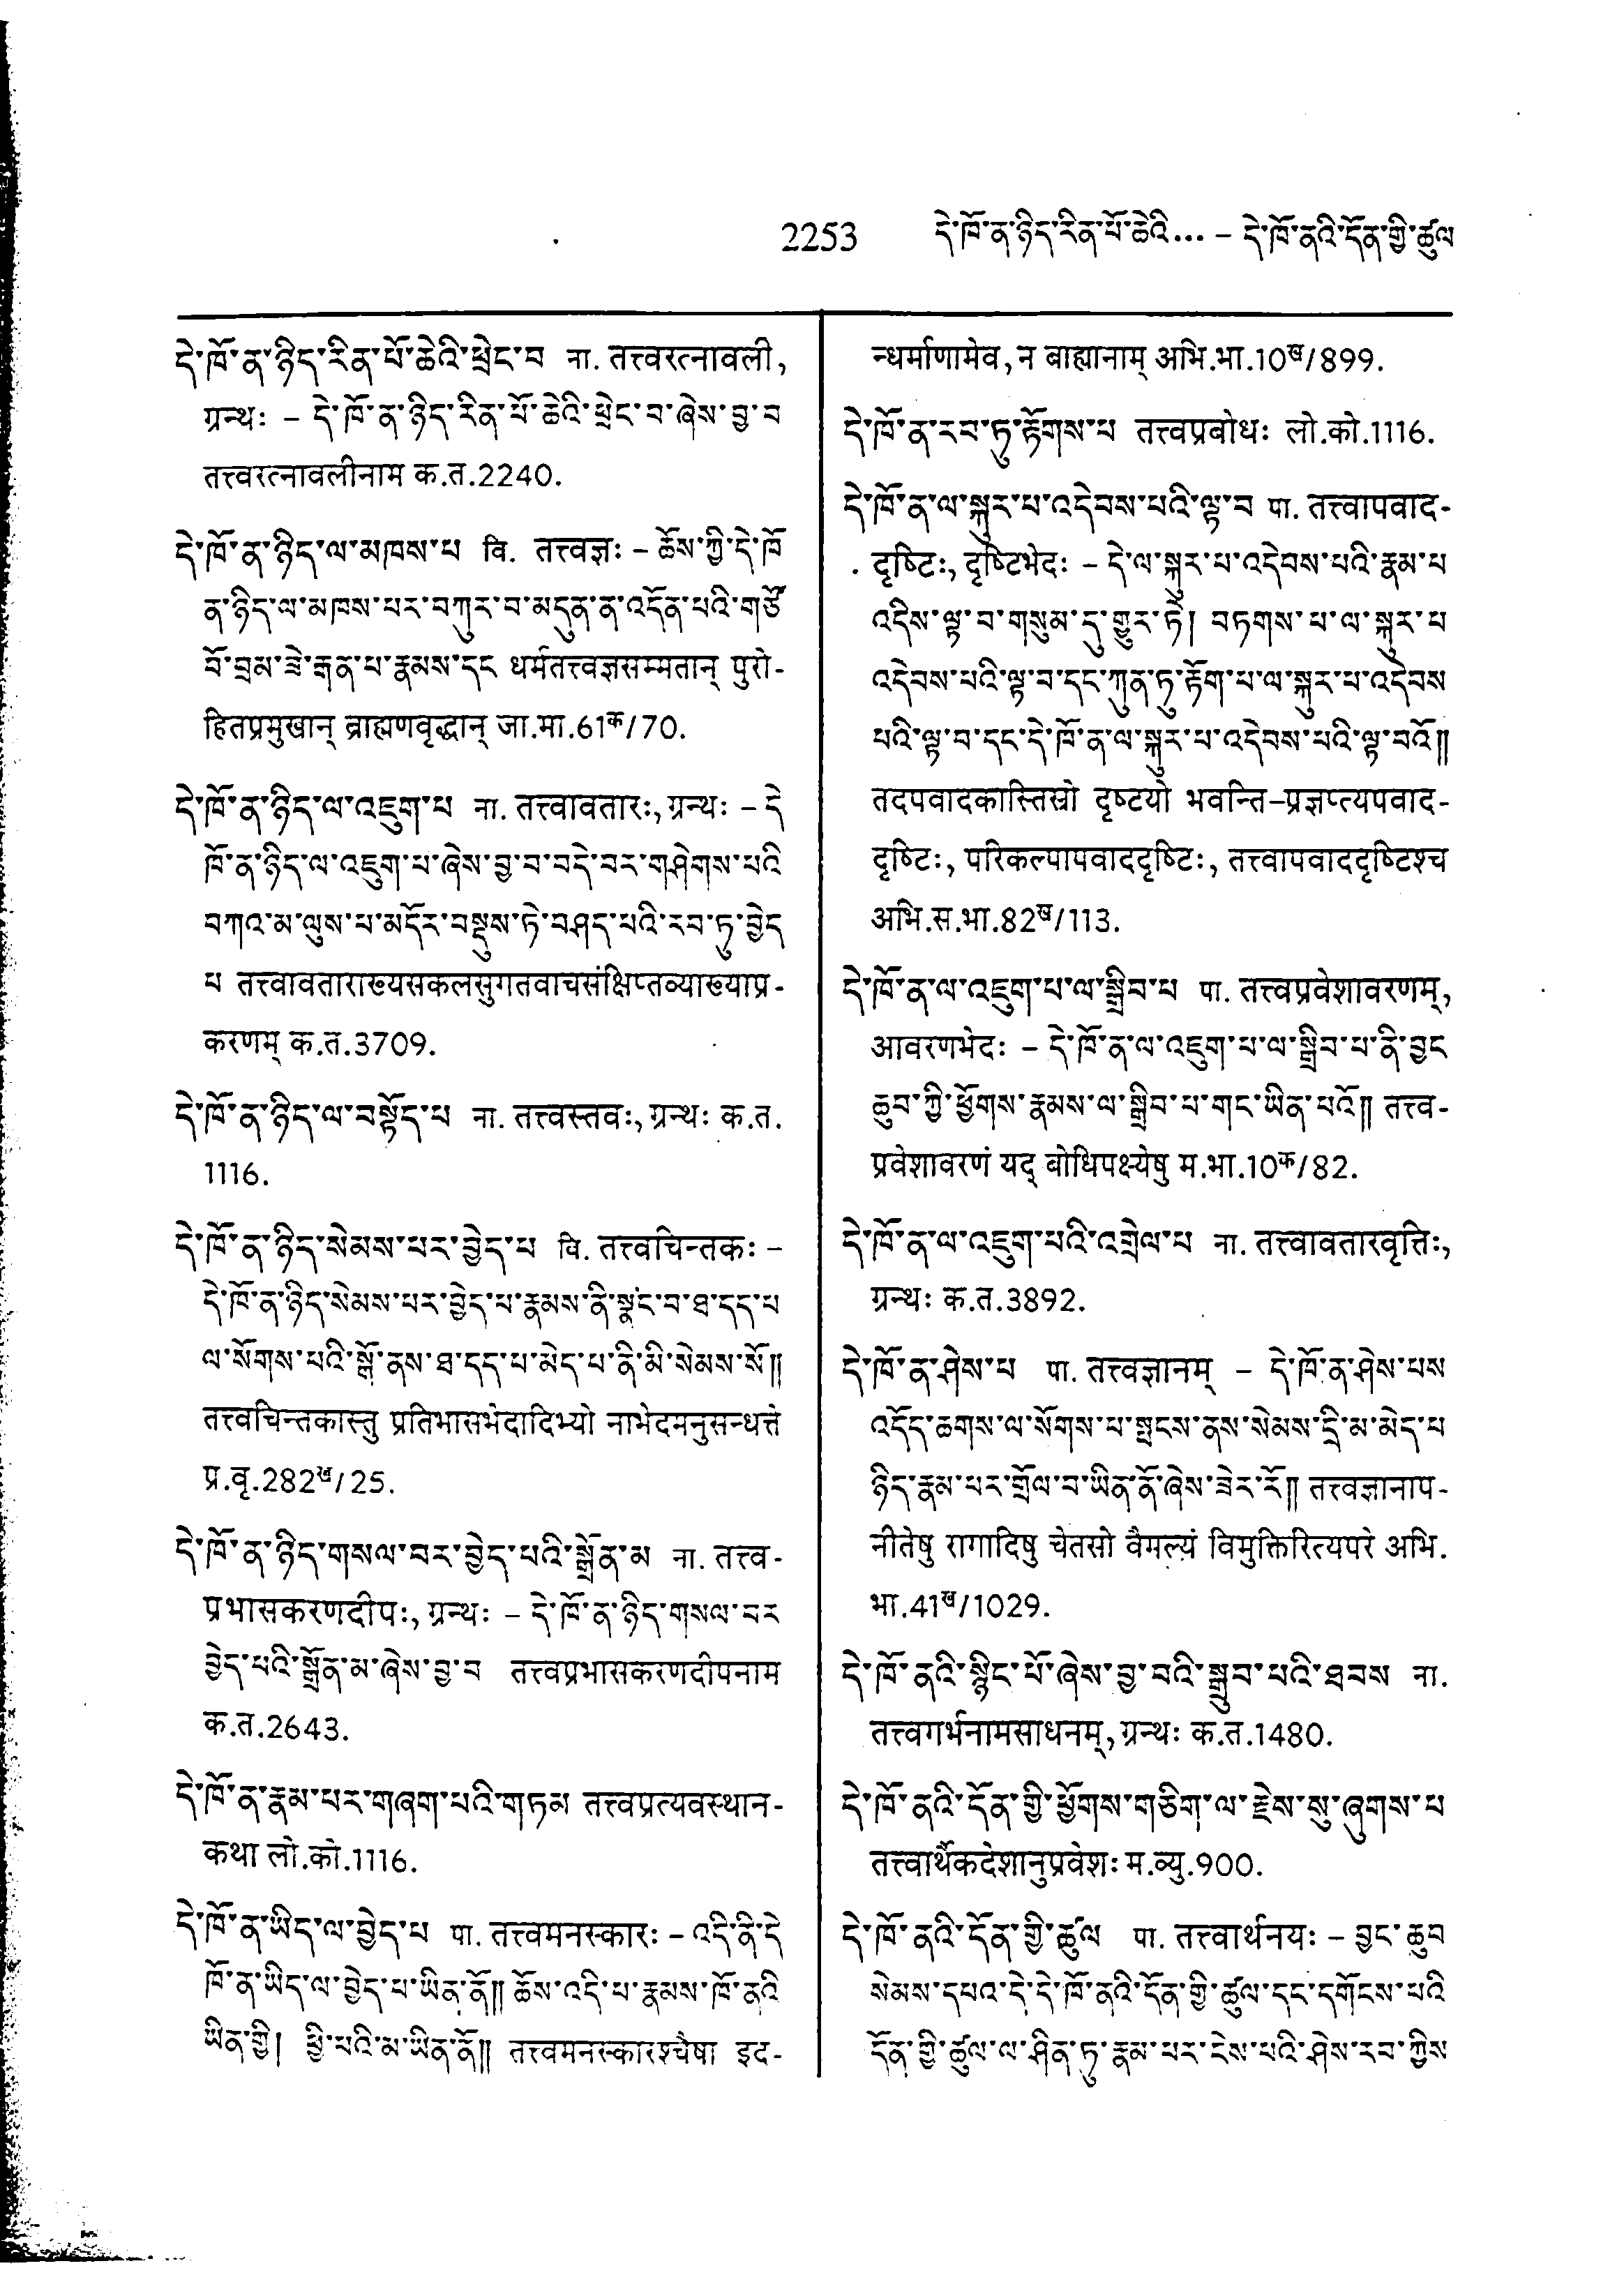 2253 དེ་ཁོ་ན་ཉིད་རིན་པོ་ཆེའི... – དེ་ཁོ་ནའི་དོན་གྱི་ཚུལ
དེ་ཁོ་ན་ཉིད་རིན་པོ་ཆེའི་ཕྲེང་བ ना. तत्त्वरत्नावली,
ग्रन्थः – དེ་ཁོ་ན་ཉིད་རིན་པོ་ཆེའི་ཕྲེང་བ་ཞེས་བྱ་བ
तत्त्वरत्नावलीनाम क.त.2240.
དེ་ཁོ་ན་ཉིད་ལ་མཁས་པ वि. तत्त्वज्ञः – ཆོས་ཀྱི་དེ་ཁོ
ན་ཉིད་ལ་མཁས་པར་བཀུར་བ་མདུན་ན་འདོན་པའི་གཙོ
བོ་བྲམ་ཟེ་རྒན་པ་རྣམས་དང धर्मतत्त्वज्ञसम्मतान् पुरो-
हितप्रमुखान् ब्राह्मणवृद्धान् जा.मा.61क/70.
དེ་ཁོ་ན་ཉིད་ལ་འཇུག་པ ना. तत्त्वावतारः, ग्रन्थः – དེ
ཁོ་ན་ཉིད་ལ་འཇུག་པ་ཞེས་བྱ་བ་བདེ་བར་གཤེགས་པའི
བཀའ་མ་ལུས་པ་མདོར་བསྡུས་ཏེ་བཤད་པའི་རབ་ཏུ་བྱེད
པ तत्त्वावताराख्यसकलसुगतवाचसंक्षिप्तव्याख्याप्र-
करणम् क.त.3709.
དེ་ཁོ་ན་ཉིད་ལ་བསྟོད་པ ना. तत्त्वस्तवः, ग्रन्थः क.त.
1116.
དེ་ཁོ་ན་ཉིད་སེམས་པར་བྱེད་པ वि. तत्त्वचिन्तकः –
དེ་ཁོ་ན་ཉིད་སེམས་པར་བྱེད་པ་རྣམས་ནི་སྣང་བ་ཐ་དད་པ
ལ་སོགས་པའི་སྒོ་ནས་ཐ་དད་པ་མེད་པ་ནི་མི་སེམས་སོ༎
तत्त्वचिन्तकास्तु प्रतिभासभेदादिभ्यो नाभेदमनुसन्धत्ते
प्र.वृ.282ख/25.
དེ་ཁོ་ན་ཉིད་གསལ་བར་བྱེད་པའི་སྒྲོན་མ ना. तत्त्व-
प्रभासकरणदीपः, ग्रन्थः – དེ་ཁོ་ན་ཉིད་གསལ་བར
བྱེད་པའི་སྒྲོན་མ་ཞེས་བྱ་བ तत्त्वप्रभासकरणदीपनाम
क.त.2643.
དེ་ཁོ་ན་རྣམ་པར་གཞག་པའི་གཏམ तत्त्वप्रत्यवस्थान-
कथा लो.को.1116.
དེ་ཁོ་ན་ཡིད་ལ་བྱེད་པ पा. तत्त्वमनस्कारः – འདི་ནི་དེ
ཁོ་ན་ཡིད་ལ་བྱེད་པ་ཡིན་ནོ༎ ཆོས་འདི་པ་རྣམས་ཁོ་ནའི
ཡིན་གྱི། ཕྱི་པའི་མ་ཡིན་ནོ༎ तत्त्वमनस्कारश्चैषा इद-
न्धर्माणामेव, न बाह्यानाम् अभि.भा.10ख/899.
དེ་ཁོ་ན་རབ་ཏུ་རྟོགས་པ तत्त्वप्रबोधः लो.को.1116.
དེ་ཁོ་ན་ལ་སྐུར་པ་འདེབས་པའི་ལྟ་བ पा. तत्त्वापवाद-
दृष्टिः, दृष्टिभेदः – དེ་ལ་སྐུར་པ་འདེབས་པའི་རྣམ་པ
འདིས་ལྟ་བ་གསུམ་དུ་གྱུར་ཏེ། བཏགས་པ་ལ་སྐུར་པ
འདེབས་པའི་ལྟ་བ་དང་ཀུན་ཏུ་རྟོག་པ་ལ་སྐུར་པ་འདེབས
པའི་ལྟ་བ་དང་དེ་ཁོ་ན་ལ་སྐུར་པ་འདེབས་པའི་ལྟ་བའོ༎
तदपवादकास्तिस्रो दृष्टयो भवन्ति–प्रज्ञप्त्यपवाद-
दृष्टिः, परिकल्पापवाददृष्टिः, तत्त्वापवाददृष्टिश्च
अभि.स.भा.82ख/113.
དེ་ཁོ་ན་ལ་འཇུག་པ་ལ་སྒྲིབ་པ पा. तत्त्वप्रवेशावरणम्,
आवरणभेदः – དེ་ཁོ་ན་ལ་འཇུག་པ་ལ་སྒྲིབ་པ་ནི་བྱང
ཆུབ་ཀྱི་ཕྱོགས་རྣམས་ལ་སྒྲིབ་པ་གང་ཡིན་པའོ༎ तत्त्व-
प्रवेशावरणं यद् बोधिपक्ष्येषु म.भा.10क/82.
དེ་ཁོ་ན་ལ་འཇུག་པའི་འགྲེལ་པ ना. तत्त्वावतारवृत्तिः,
ग्रन्थः क.त.3892.
དེ་ཁོ་ན་ཤེས་པ पा. तत्त्वज्ञानम् – དེ་ཁོ་ན་ཤེས་པས
འདོད་ཆགས་ལ་སོགས་པ་སྤངས་ནས་སེམས་དྲི་མ་མེད་པ
ཉིད་རྣམ་པར་གྲོལ་བ་ཡིན་ནོ་ཞེས་ཟེར་རོ༎ तत्त्वज्ञानाप-
नीतेषु रागादिषु चेतसो वैमल्यं विमुक्तिरित्यपरे अभि.
भा.41ख/1029.
དེ་ཁོ་ནའི་སྙིང་པོ་ཞེས་བྱ་བའི་སྒྲུབ་པའི་ཐབས ना.
तत्त्वगर्भनामसाधनम्, ग्रन्थः क.त.1480.
དེ་ཁོ་ནའི་དོན་གྱི་ཕྱོགས་གཅིག་ལ་རྗེས་སུ་ཞུགས་པ
तत्त्वार्थैकदेशानुप्रवेशः म.व्यु.900.
དེ་ཁོ་ནའི་དོན་གྱི་ཚུལ पा. तत्त्वार्थनयः – བྱང་ཆུབ
སེམས་དཔའ་དེ་དེ་ཁོ་ནའི་དོན་གྱི་ཚུལ་དང་དགོངས་པའི
དོན་གྱི་ཚུལ་ལ་ཤིན་ཏུ་རྣམ་པར་ངེས་པའི་ཤེས་རབ་ཀྱིས